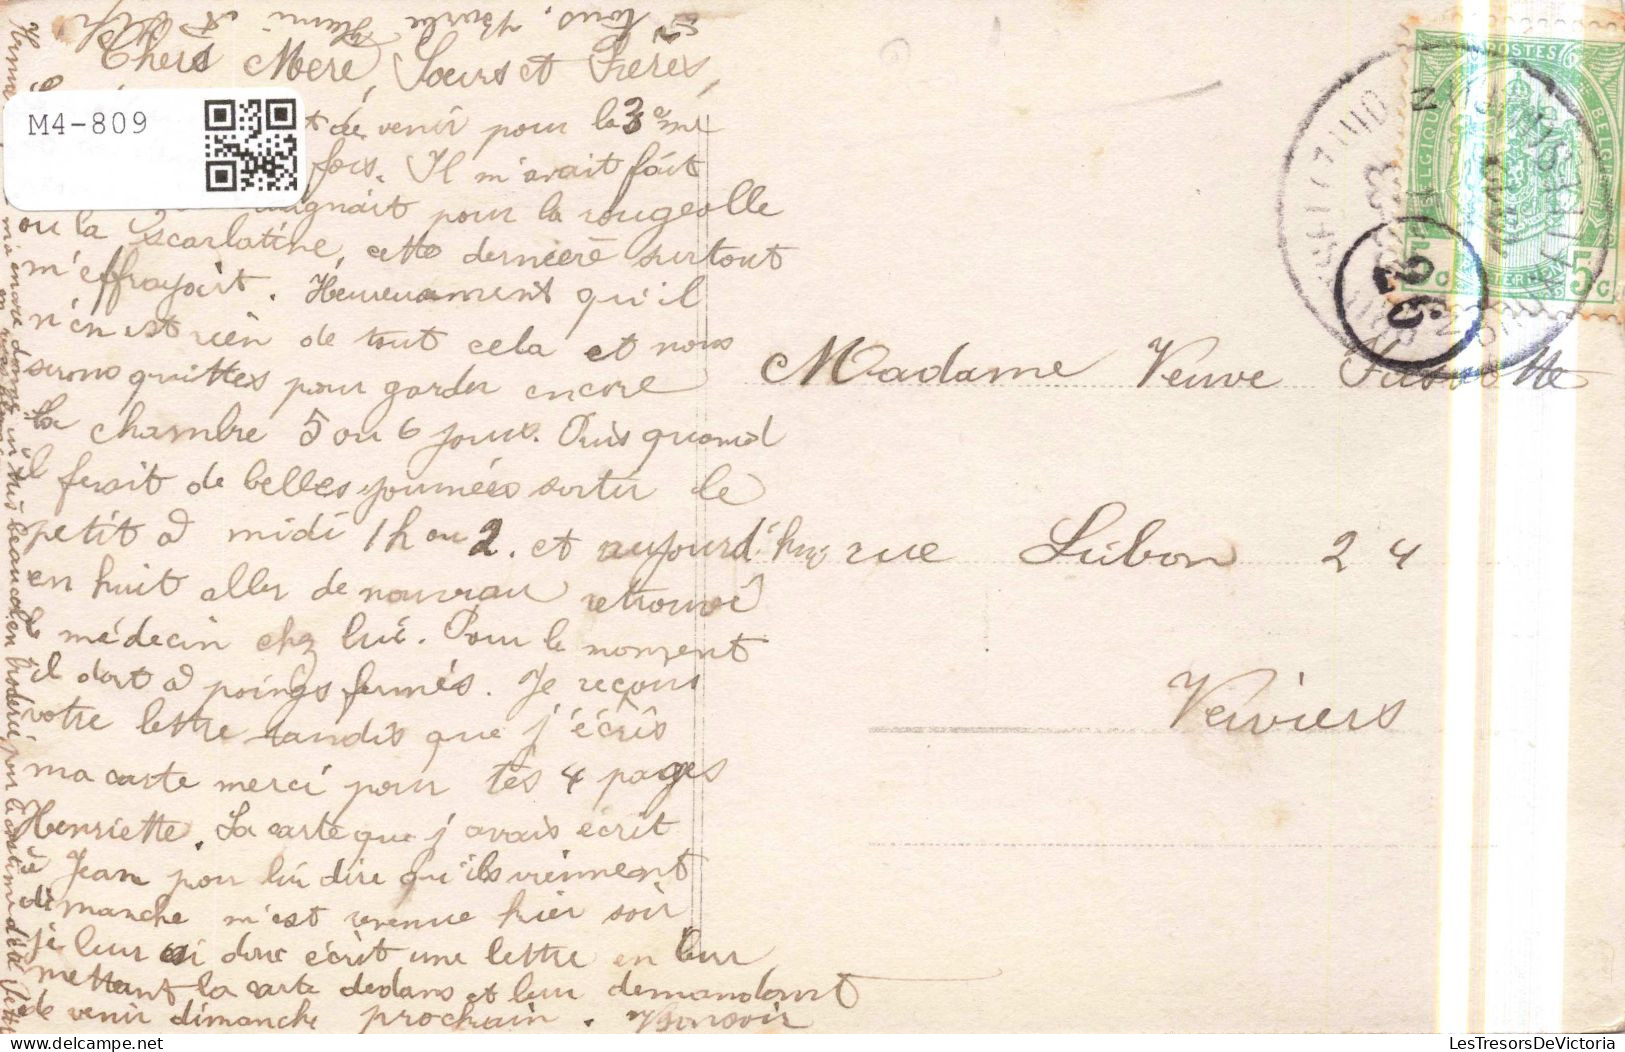 à tous.
Chers Mère, Sœurs et Frères,
M4-809
de venir pour la 3ème
fois. Il m'avait fait
pour la rougeolle
ou la Scarlatine, cette dernière surtout
m'effrayait. Heureusement qu'il
n'en est rien de tout cela et nous
serons quittes pour garder encore
la chambre 5 ou 6 jours. Puis quand
il ferait de belles journées sortir le
petit à midi 1 h ou 2. et aujourd'hui
en huit aller de nouveau retrouvé
le médecin chez lui. Pour le moment
il dort à poings fermés. Je reçois
votre lettre tandis que j'écris
ma carte merci pour tes 4 pages
Henriette. La carte que j'avais écrit
à Jean pour lui dire qu'ils viennent
dimanche m'est revenue hier soir
je leur ai donc écrit une lettre en leur
mettant la carte dedans et leur demandant
de venir dimanche prochain. Bonsoir
Madame Veuve
rue Libon 24
Verviers
POSTES
BELGIQUE
BELGIE
5c 5c
LesTresorsDeVictoria.com